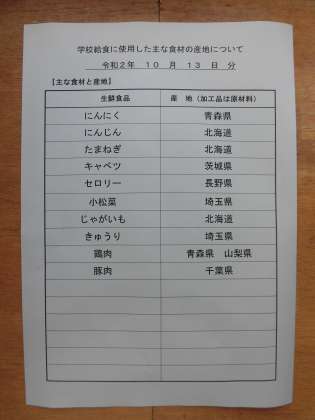 学校給食に使用した主な食材の産地について
令和2年 10 月 13 日 分
【主な食材と産地】
生鮮食品 産 地（加工品は原材料）
にんにく 青森県
にんじん 北海道
たまねぎ 北海道
キャベツ 茨城県
セロリー 長野県
小松菜 埼玉県
じゃがいも 北海道
きゅうり 埼玉県
鶏肉 青森県 山梨県
豚肉 千葉県